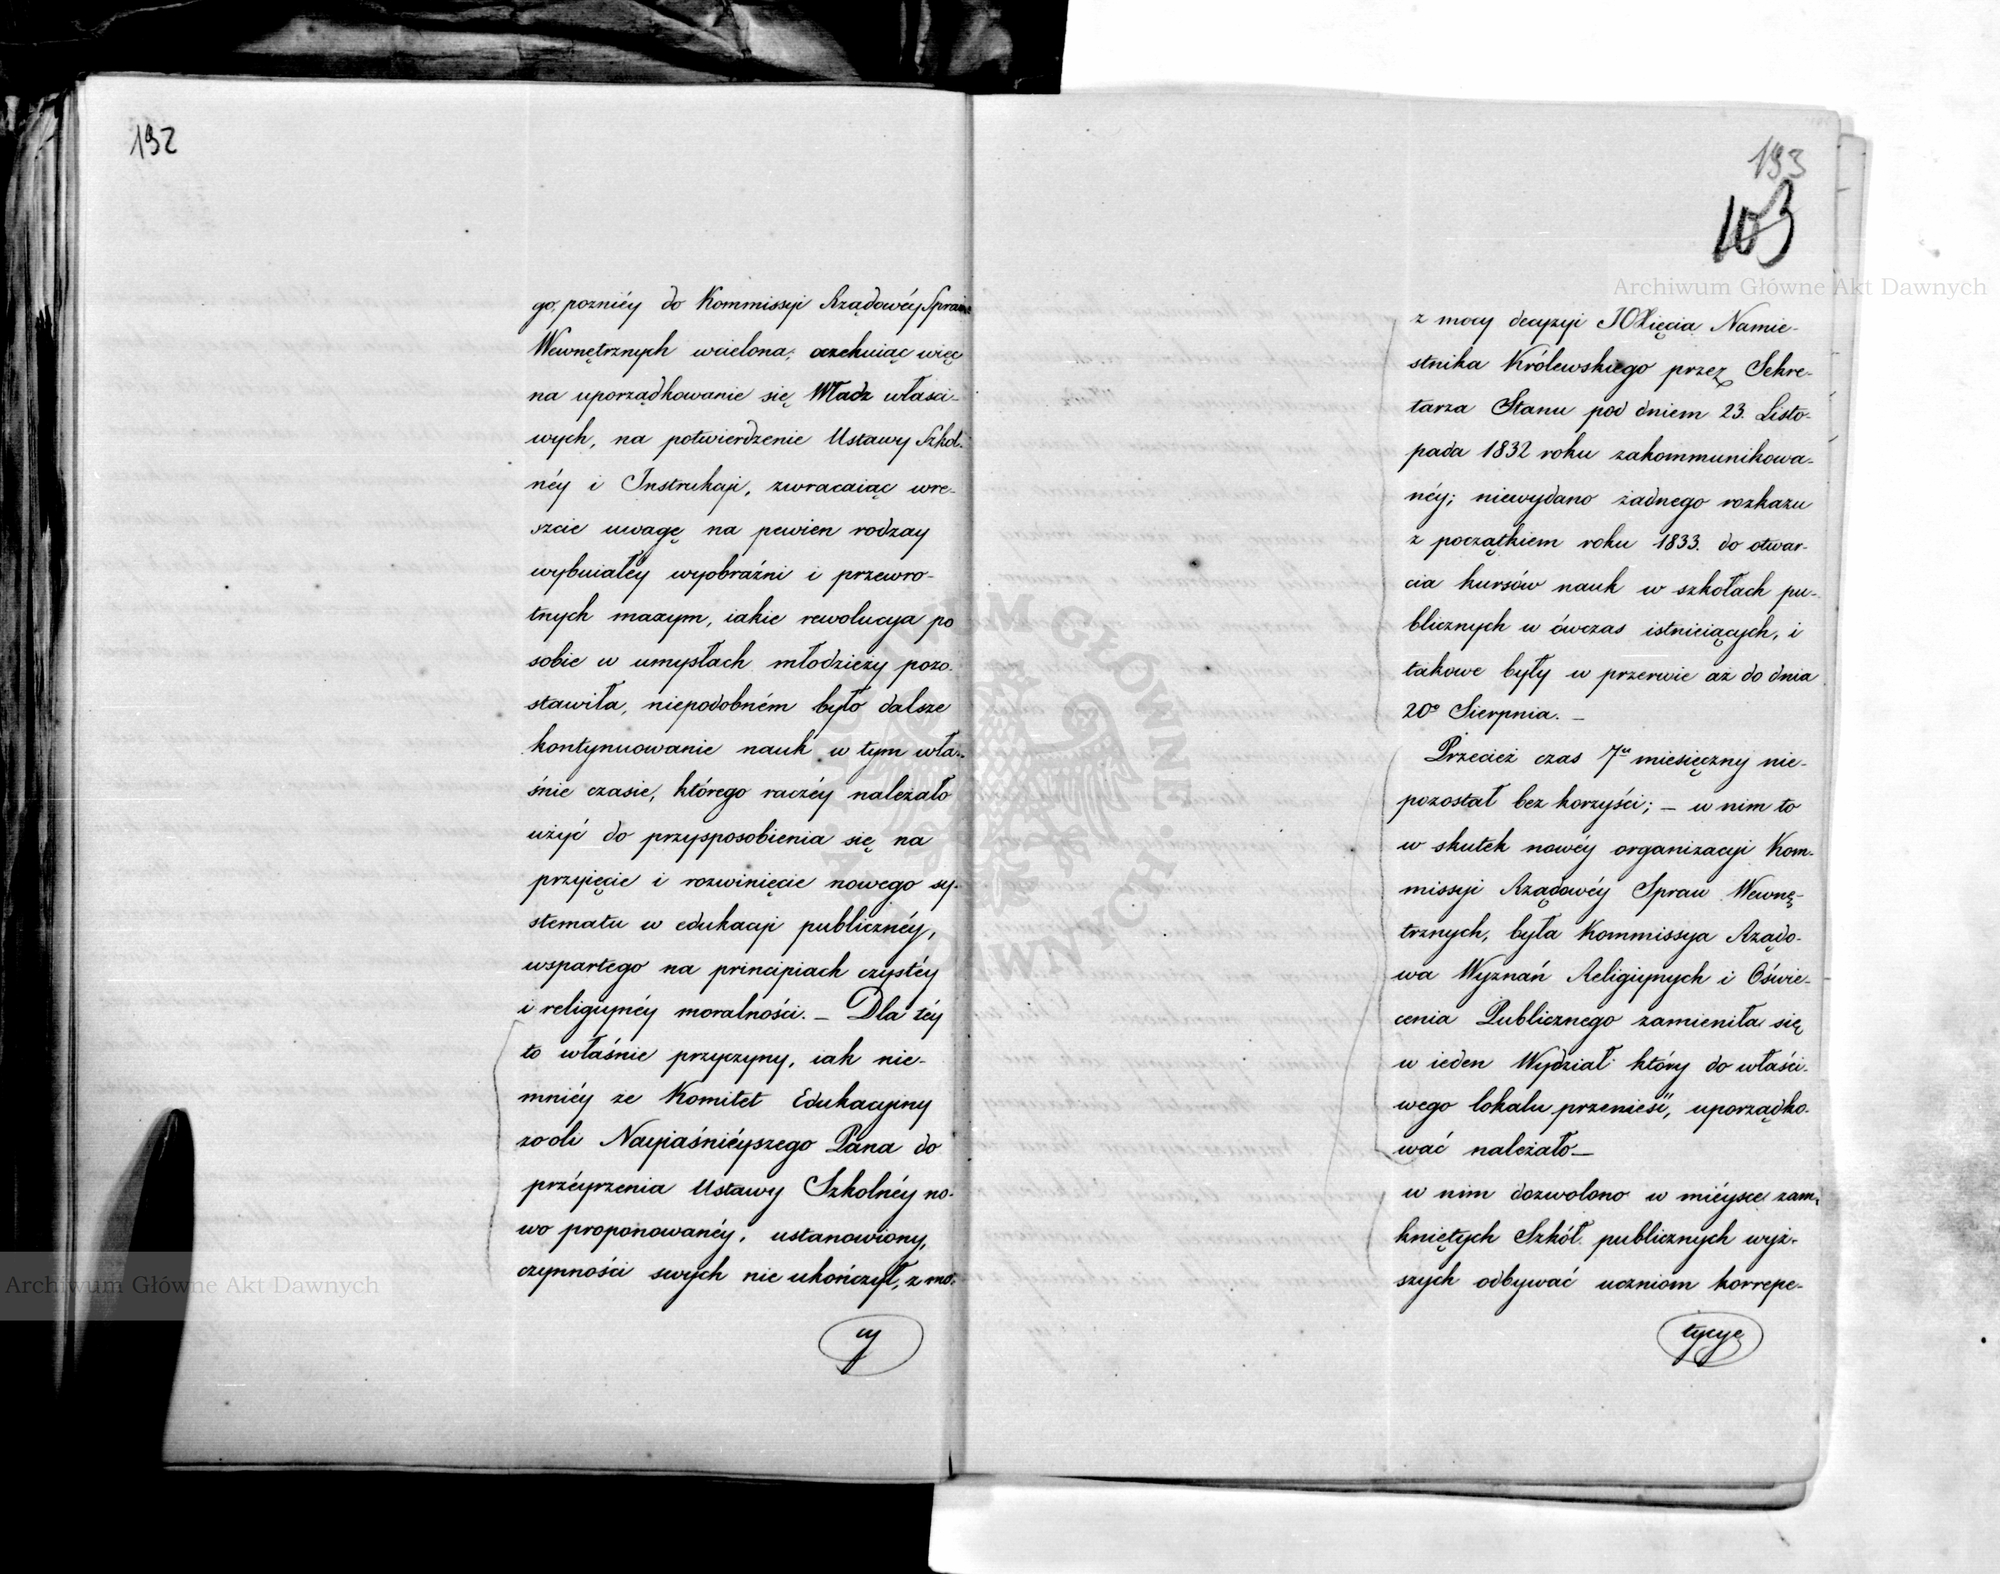 192
go, pozniéy do Kommissyi Rządowéy Spraw
Wewnętrznych wcielona; oczekuiąc więc
na uporządkowanie się Władz właści-
wych, na potwierdzenie Ustawy Szkol-
néy i Instrukcji, zwracaiąc wre-
szcie uwagę na pewien rodzay
wybuiałéy wyobraźni i przewro-
tnych maxym, iakie rewolucya po
sobie w umysłach młodzieży pozo-
stawiła, niepodobném było dalsze
kontynuowanie nauk w tym wła-
śnie czasie, którego raczéy należało
użyć do przysposobienia się na
przyięcie i rozwinięcie nowego sy-
stematu w edukacji publicznéy,
wspartego na principiach czystéy
i religijnéy moralności. – Dla téy
to właśnie przyczyny, iak nie-
mniéy że Komitet Edukacyjny
z woli Nayiaśniéyszego Pana do
przéyrzenia Ustawy Szkolnéy no-
wo proponowanéy, ustanowiony,
czynności swych nie ukończył, z mo-
cy
193
103
Archiwum Główne Akt Dawnych
z mocy decyzyi JOXięcia Namie-
stnika Królewskiego przez Sekre-
tarza Stanu pod dniem 23. Listo-
pada 1832 roku zakommunikowa-
néy; niewydano żadnego rozkazu
z początkiem roku 1833. do otwar-
cia kursów nauk w szkołach pu-
blicznych w ówczas istnieiących, i
takowe były w przerwie aż do dnia
20º Sierpnia. –
Przecież czas 7u miesięczny nie-
pozostał bez korzyści; – w nim to
w skutek nowéy organizacyi Kom-
missyi Rządowéy Spraw Wewnę-
trznych, była Kommissya Rządo-
wa Wyznań Religijnych i Oświe-
cenia Publicznego zamieniła się
w ieden Wydział który do właści-
wego lokalu przenieść, uporządko-
wać należało –
w nim dozwolono w miéysce zam-
kniętych Szkół publicznych wyż-
szych odbywać uczniom korrepe-
tycye
Archiwum Główne Akt Dawnych
ARCHIWUM GŁÓWNE AKT DAWNYCH